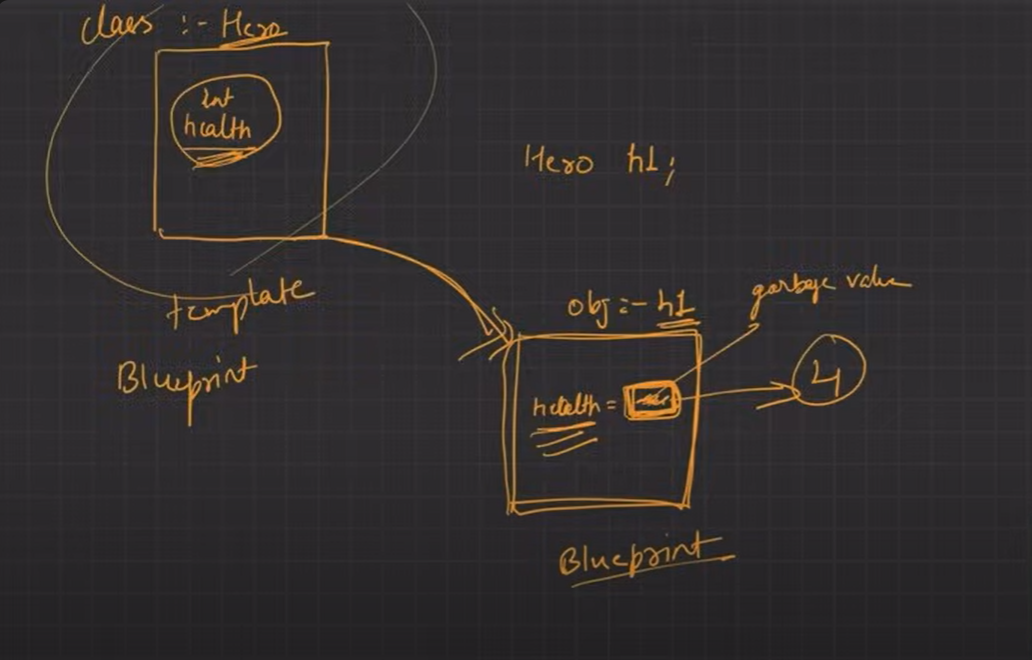 class :- Hero
int
health
Hero h1;
template
Blueprint
obj :- h1
garbage value
health =
4
Blueprint